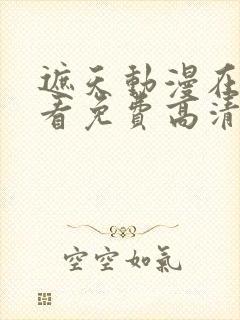 遮天動漫在
看免費高清
空空如氣